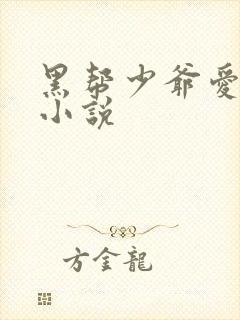 黑帮少爷愛
小説
方金龍